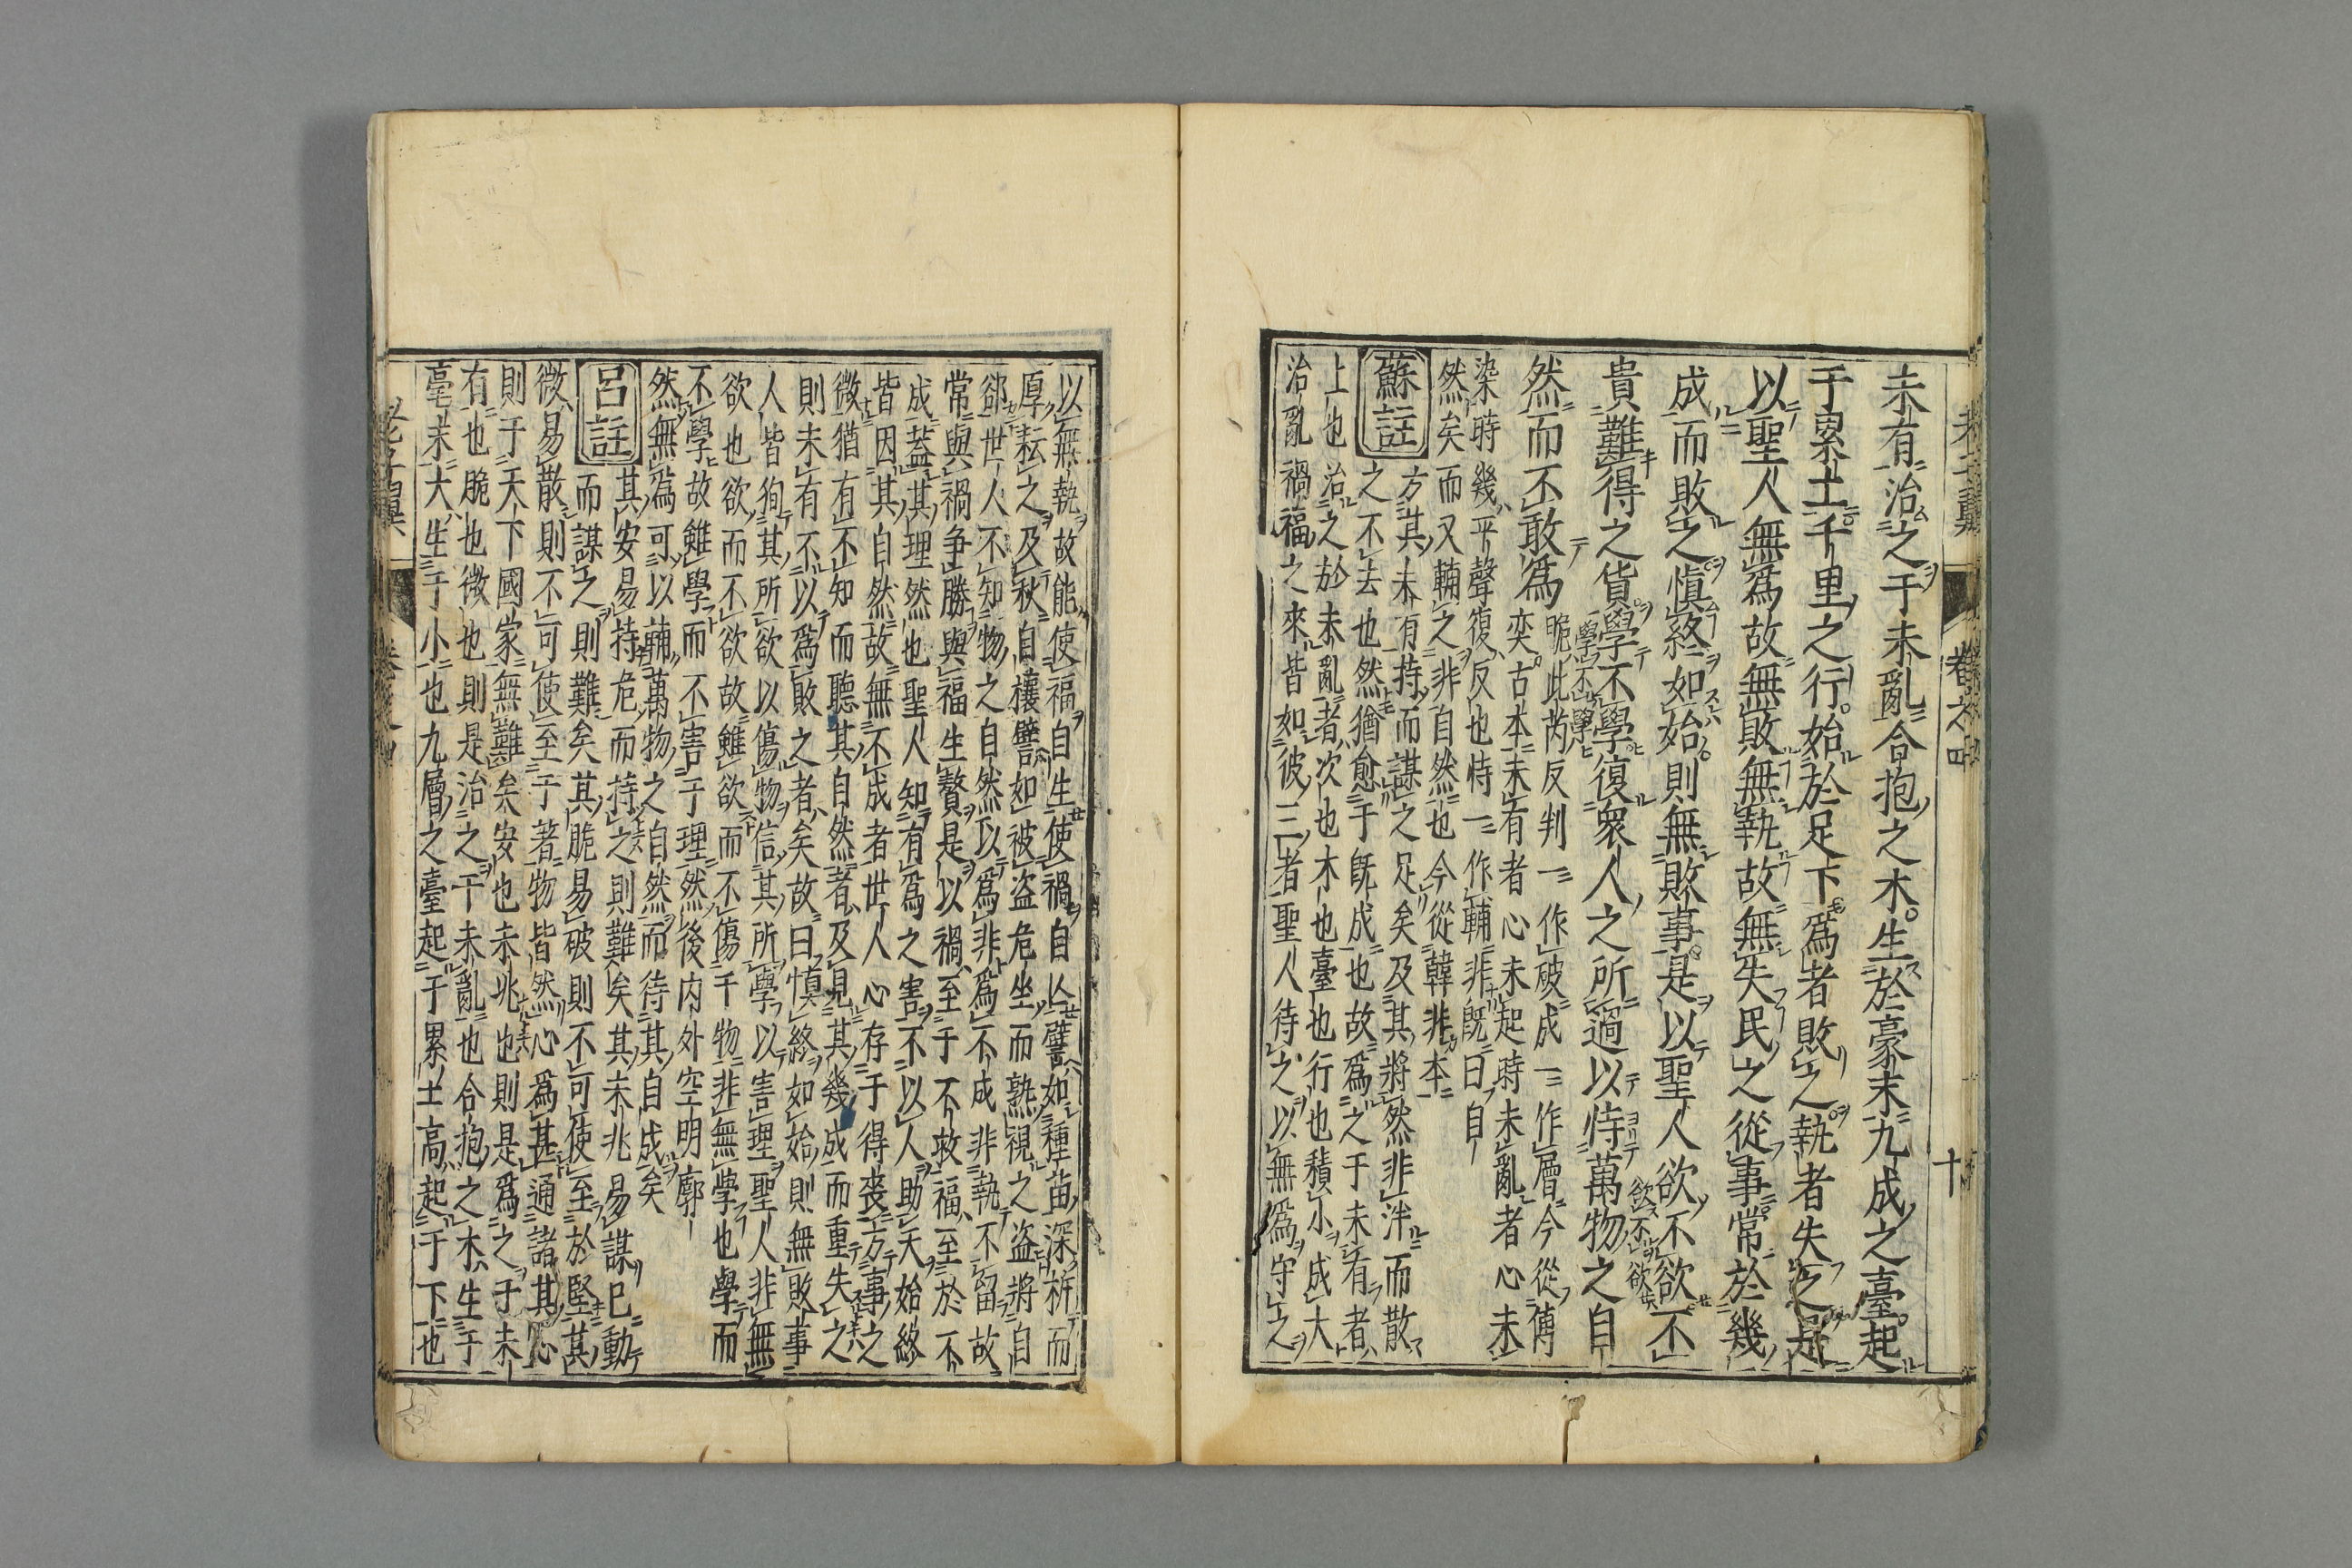 老子翼 卷之四 十
未有治之于未亂合抱之木生於豪末九成之臺起
于累土千里之行始於足下爲者敗之執者失之是
以聖人無爲故無敗無執故無失民之從事常於幾
成而敗之愼終如始則無敗事是以聖人欲不欲不
貴難得之貨學不學復衆人之所過以恃萬物之自
然而不敢爲
脆此芮反判一作破成一作層今從傅
奕古本未有者心未起時未亂者心未
染時幾平聲復反也恃一作輔非既曰自
然矣而又輔之非自然也今從韓非本
蘇註
方其未有持而謀之足矣及其將然非泮而散
之不去也然猶愈于既成也故爲之于未有者
上也治之於未亂者次也木也臺也行也積小成大
治亂禍福之來皆如彼三者聖人待之以無爲守之
以無執故能使福自生使禍自亾譬如種苗深耕而
厚耘之及秋自穰譬如被盗危坐而熟視之盗將自
郤世人不知物之自然以爲非爲不成非執不留故
常與禍争勝與福生贅是以禍至于不救福至於不
成蓋其理然也聖人知有爲之害不以人助天始終
皆因其自然故無不成者世人心存于得喪方事之
微猶有不知而聽其自然者及見其幾成而重失之
則未有不以爲敗之者矣故曰慎終如始則無敗事
人皆狥其所欲以傷物信其所學以害理聖人非無
欲也欲而不欲故雖欲而不傷于物非無學也學而
不學故雖學而不害于理然後内外空明廓
然無爲可以輔萬物之自然而待其自成矣
呂註
其安易持危而持之則難矣其未兆易謀已動
而謀之則難矣其脆易破則不可使至於堅其
微易散則不可使至于著物皆然心爲甚通諸其心
則于天下國家無難矣安也未兆也則是爲之于未
有也脆也微也則是治之于未亂也合抱之木生于
毫末大生于小也九層之臺起于累土高起于下也
老子翼 卷之四